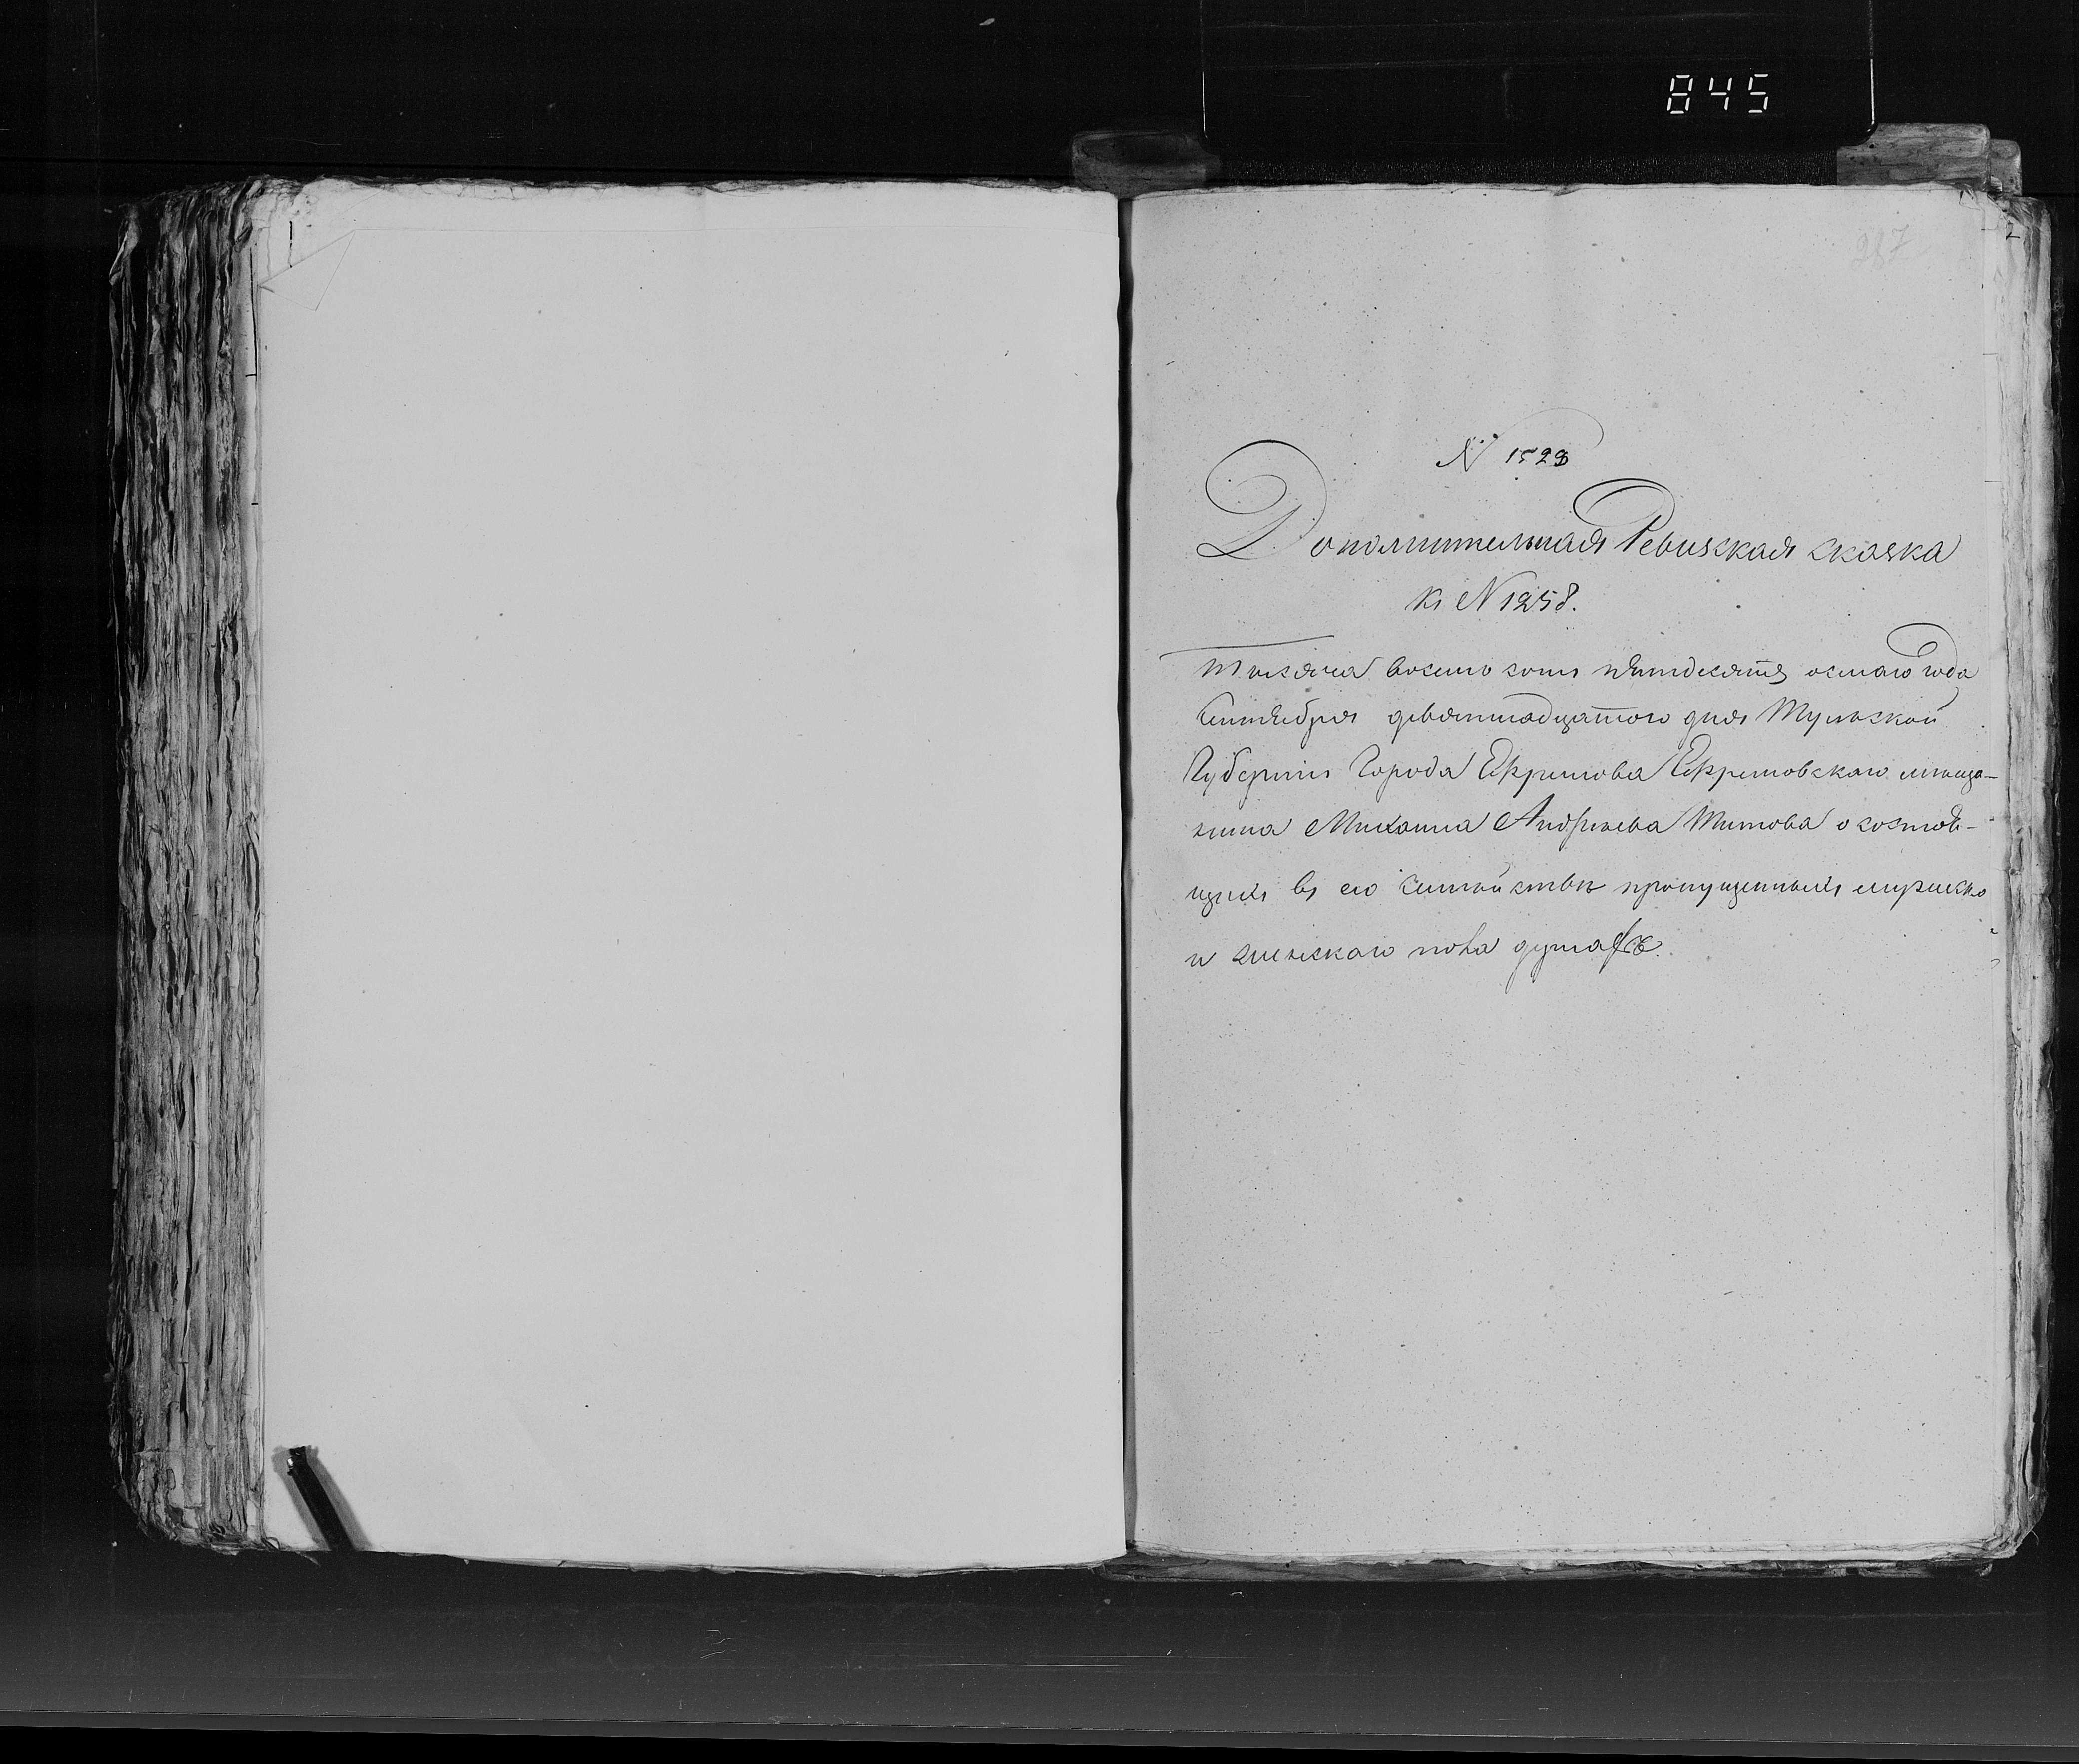 845
287
N 1528
Дополнительная Ревизская сказка
къ N 1258.
Тысяча восемь сотъ пятьдесятъ осмаго года
Сентября девятнадцатого дня Тульской
Губерніи Города Ефремова Ефремовскаго мѣща-
нина Михаила Андреева Титова о состоя-
щихъ въ его семействѣ пропущенныхъ мужска
и женскаго пола душахъ.